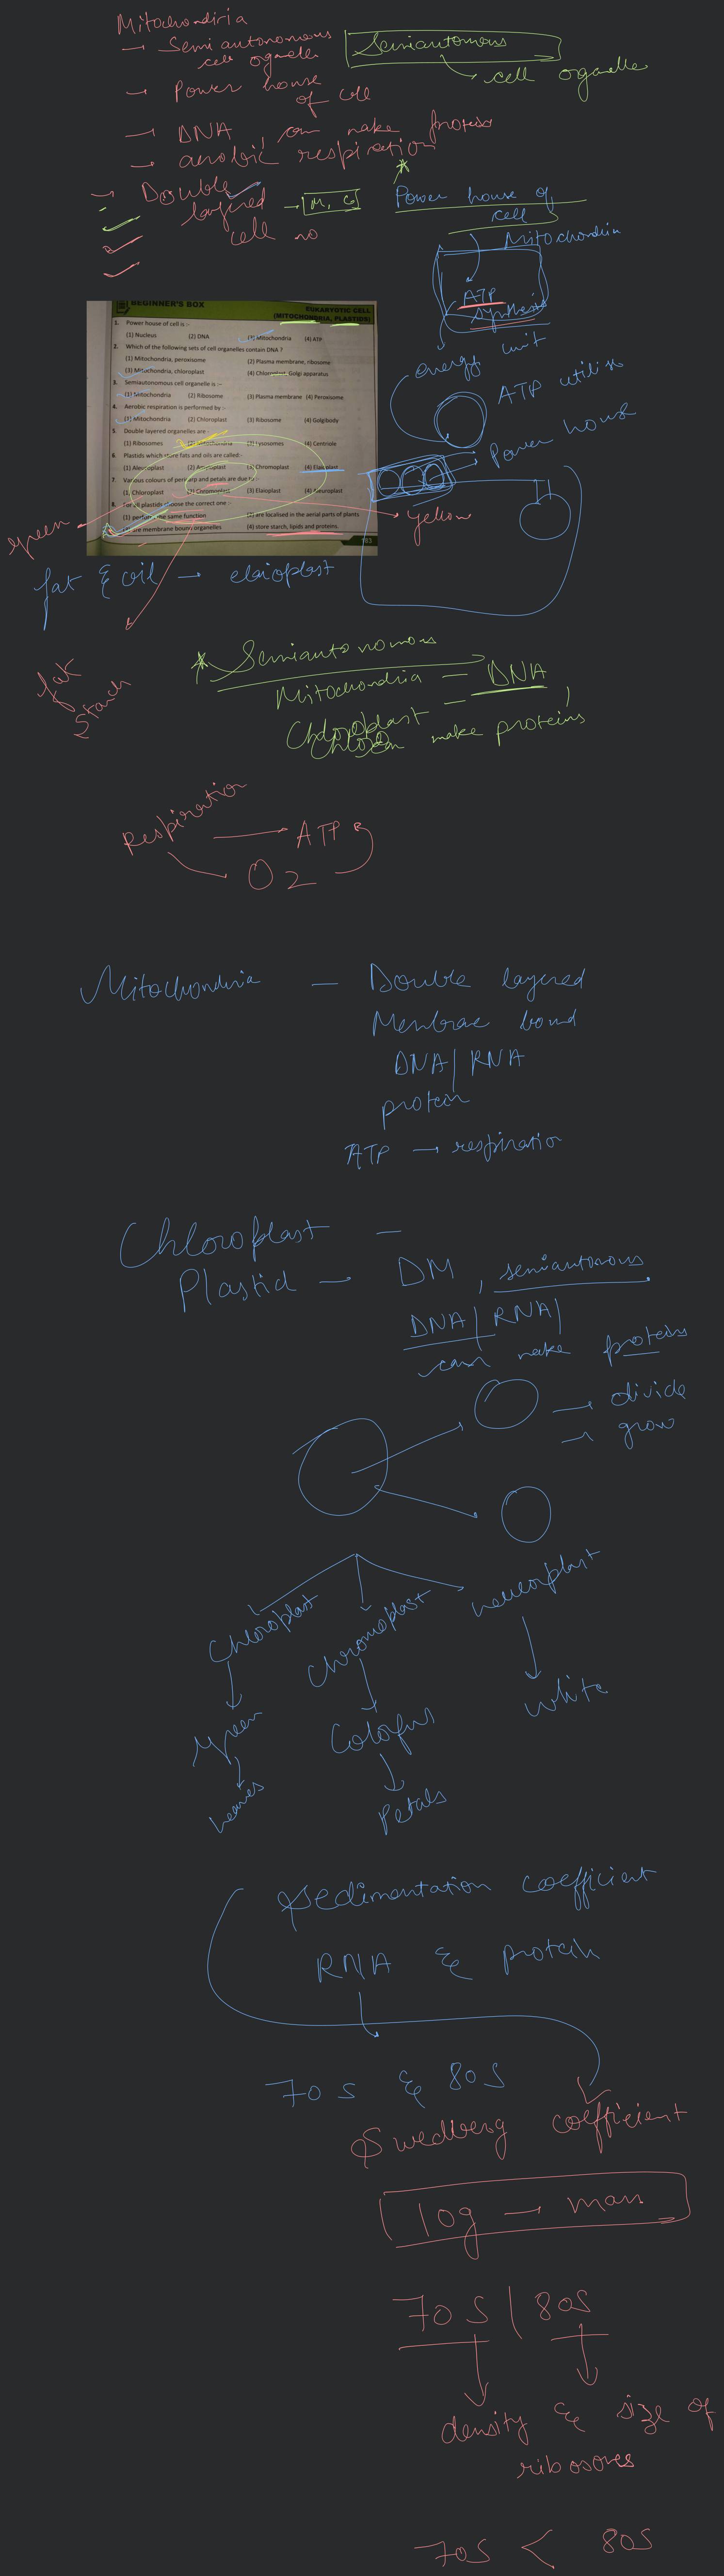 Mitochondiria
→ Semi autonomous
cell organelle
→ Power house
of cell
→ DNA, can make protein
→ aerobic respiration
→ Double
layered → M, C
cell no
Semiautomous
→ cell organelle
Power house of
cell
Mitochondria
ATP
synthesis
unit
energy
ATP utilise
Power house
BEGINNER'S BOX
EUKARYOTIC CELL
(MITOCHONDRIA, PLASTIDS)
1. Power house of cell is :-
(1) Nucleus (2) DNA (3) Mitochondria (4) ATP
2. Which of the following sets of cell organelles contain DNA ?
(1) Mitochondria, peroxisome (2) Plasma membrane, ribosome
(3) Mitochondria, chloroplast (4) Chloroplast, Golgi apparatus
3. Semiautonomous cell organelle is :-
(1) Mitochondria (2) Ribosome (3) Plasma membrane (4) Peroxisome
4. Aerobic respiration is performed by :-
(1) Mitochondria (2) Chloroplast (3) Ribosome (4) Golgibody
5. Double layered organelles are :-
(1) Ribosomes (2) Mitochondria (3) Lysosomes (4) Centriole
6. Plastids which store fats and oils are called:-
(1) Aleuroplast (2) Amyloplast (3) Chromoplast (4) Elaioplast
7. Various colours of pericarp and petals are due to :-
(1) Chloroplast (2) Chromoplast (3) Elaioplast (4) Aleuroplast
8. For all plastids choose the correct one :-
(1) perform the same function (2) are localised in the aerial parts of plants
are membrane bound organelles (4) store starch, lipids and proteins.
183
green
yellow
fat & oil → elaioplast
fat
Starch
* Semiautonomous
Mitochondria — DNA,
Chloroplast —
make proteins
Respiration → ATP
O2
Mitochondria — Double layered
Menbrae bond
DNA | RNA
protein
ATP → respiration
Chloroplast —
Plastid → DM, semiautonous
DNA | RNA |
can make proteins
→ divide
→ grow
Chloroplast
Chromoplast
green
Colorfus
white
leaves
Petals
Sedimentation coefficient
RNA & protein
70 S & 80S
Swedberg coefficient
10g → man
70 S | 80S
density & size of
ribosomes
70S < 80S